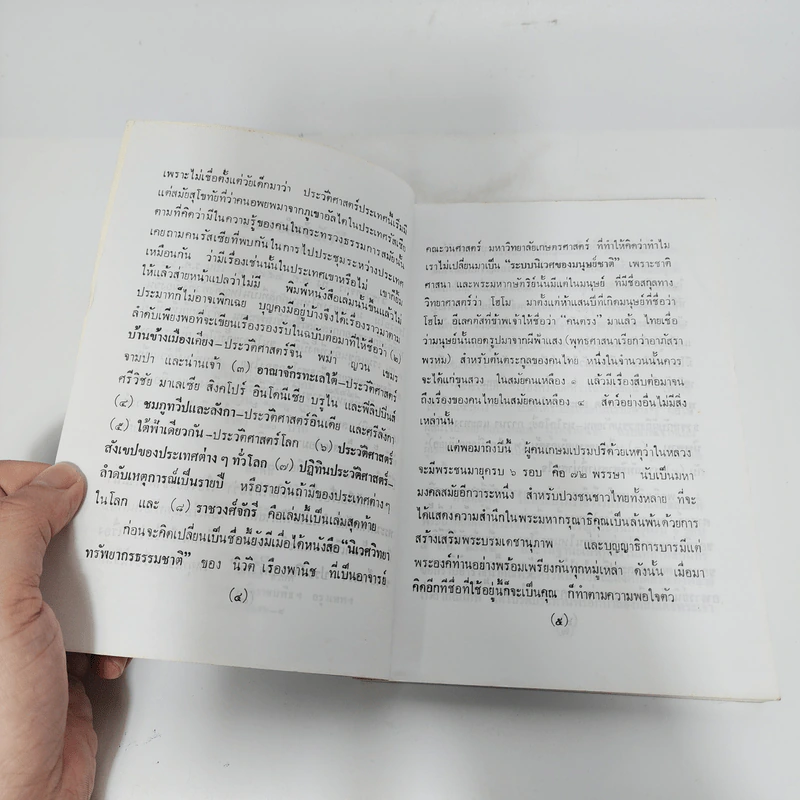 เพราะไม่เชื่อตั้งแต่วัยเด็กมาว่า ประวัติศาสตร์ประเทศนี้เริ่มมี
แต่สมัยสุโขทัยที่ว่าคนอพยพมาจากภูเขาอัลไตในประเทศรัสเซีย
ตามที่คิดว่ามีในความรู้ของคนในกระทรวงธรรมการสมัยนั้น
เคยถามคนรัสเซียที่พบกันในการไปประชุมระหว่างประเทศ
เหมือนกัน ว่ามีเรื่องเช่นนั้นในประเทศเขาหรือไม่ เขาก็ยิ้ม
ให้แล้วส่ายหน้าแปลว่าไม่มี พิมพ์หนังสือเล่มนั้นขึ้นแล้วไม่
ประมาทก็ไม่อาจเพิกเฉย บุญคงมีอยู่บ้างจึงได้เรื่องราวมาตาม
ลำดับเพียงพอที่จะเขียนเรื่องรองรับในฉบับต่อมาที่ให้ชื่อว่า (๒)
บ้านข้างเมืองเคียง–ประวัติศาสตร์จีน พม่า ญวน เขมร
จามปา และน่านเจ้า (๓) อาณาจักรทะเลใต้–ประวัติศาสตร์
ศรีวิชัย มาเลเซีย สิงคโปร์ อินโดนีเซีย บรูไน และฟิลิปปินส์
(๔) ชมภูทวีปและลังกา–ประวัติศาสตร์อินเดีย และศรีลังกา
(๕) ใต้ฟ้าเดียวกัน–ประวัติศาสตร์โลก (๖) ประวัติศาสตร์
สังเขปของประเทศต่าง ๆ ทั่วโลก (๗) ปฏิทินประวัติศาสตร์–
ลำดับเหตุการณ์เป็นรายปี หรือรายวันถ้ามีของประเทศต่างๆ
ในโลก และ (๘) ราชวงศ์จักรี คือเล่มนี้เป็นเล่มสุดท้าย
ก่อนจะคิดเปลี่ยนเป็นชื่อนี้ยังมีเมื่อได้หนังสือ “นิเวศวิทยา
ทรัพยากรธรรมชาติ” ของ นิวัติ เรืองพานิช ที่เป็นอาจารย์
(๔)
คณะวนศาสตร์ มหาวิทยาลัยเกษตรศาสตร์ ที่ทำให้คิดว่าทำไม
เราไม่เปลี่ยนมาเป็น “ระบบนิเวศของมนุษย์ชาติ” เพราะชาติ
ศาสนา และพระมหากษัตริย์นั้นมีแต่ในมนุษย์ ที่มีชื่อสกุลทาง
วิทยาศาสตร์ว่า โฮโม มาตั้งแต่ห้าแสนปีที่เกิดมนุษย์ที่ชื่อว่า
โฮโม อีเลคตัสที่ข้าพเจ้าให้ชื่อว่า “คนตรง” มาแล้ว ไทยเชื่อ
ว่ามนุษย์นั้นถอดรูปมาจากผีฟ้าแสง (พุทธศาสนาเรียกว่าอาภัสรา
พรหม) สำหรับต้นตระกูลของคนไทย หนึ่งในจำนวนนั้นควร
จะได้แก่ขุนสวง ในสมัยคนเหลือง ๑ แล้วมีเรื่องสืบต่อมาจน
ถึงเรื่องของคนไทยในสมัยคนเหลือง ๔ สัตว์อย่างอื่นไม่มีสิ่ง
เหล่านั้น
แต่พอมาถึงปีนี้ ผู้คนเกษมเปรมปรีด้วยเหตุว่าในหลวง
จะมีพระชนมายุครบ ๖ รอบ คือ ๗๒ พรรษา นับเป็นมหา
มงคลสมัยอีกวาระหนึ่ง สำหรับปวงชนชาวไทยทั้งหลาย ที่จะ
ได้แสดงความสำนึกในพระมหากรุณาธิคุณเป็นล้นพ้นด้วยการ
สร้างเสริมพระบรมเดชานุภาพ และบุญญาธิการบารมีแด่
พระองค์ท่านอย่างพร้อมเพรียงกันทุกหมู่เหล่า ดังนั้น เมื่อมา
คิดอีกทีชื่อที่ใช้อยู่นี้ก็จะเป็นคุณ ก็ทำตามความพอใจตัว
(๕)